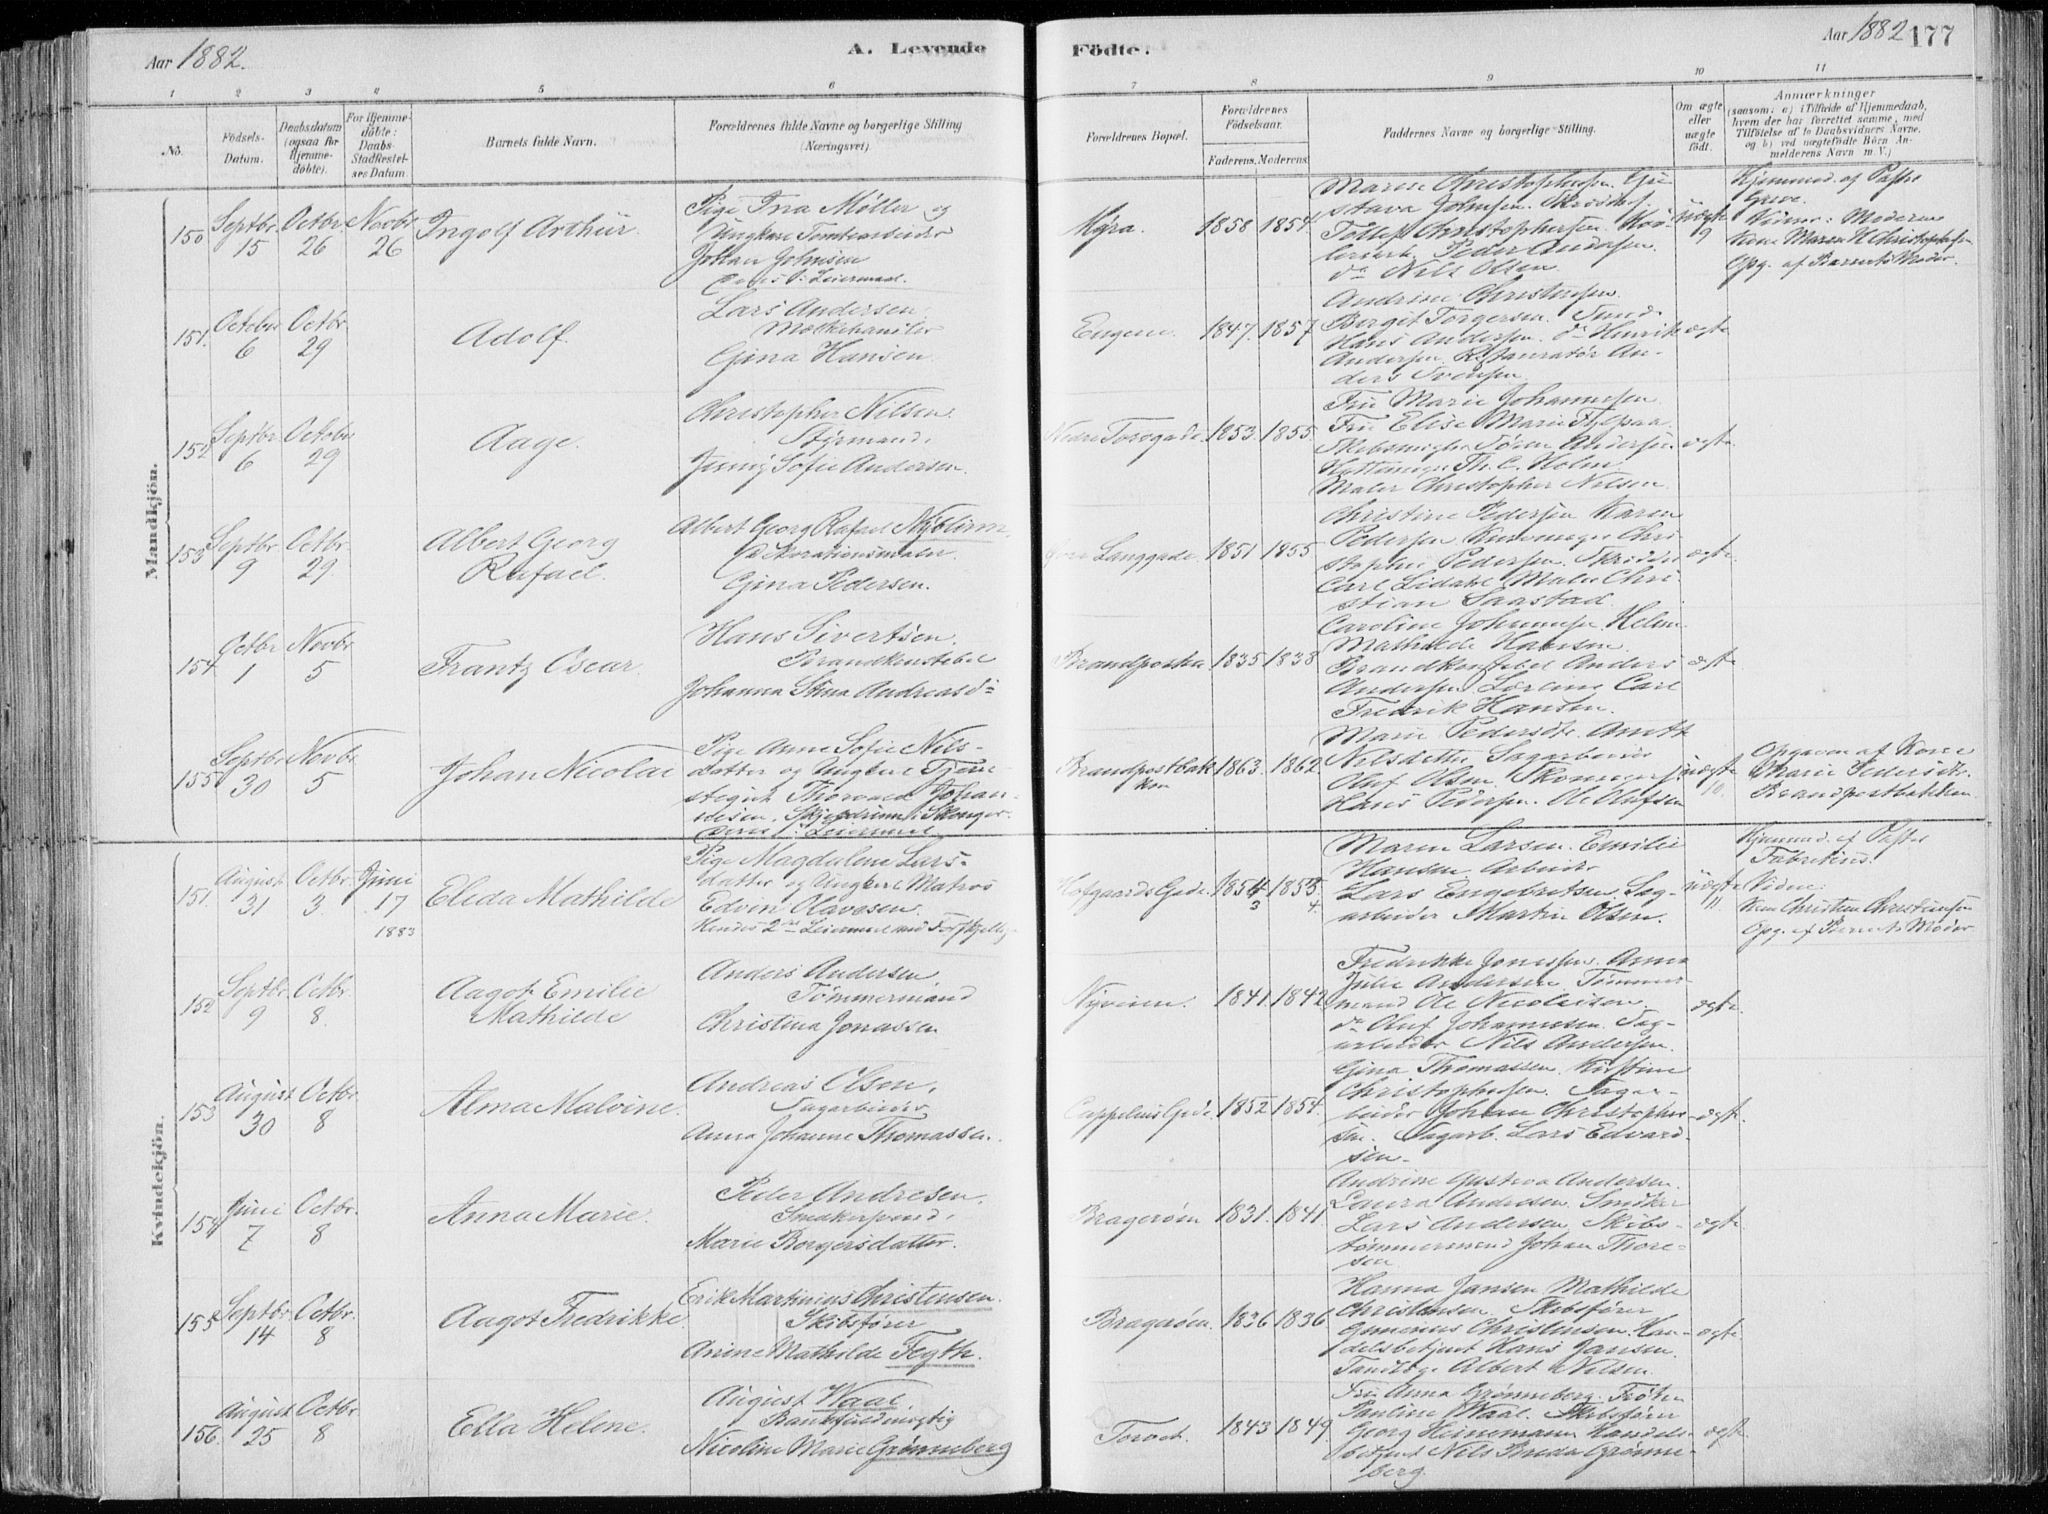 Aar 1882.
A. Levende
Födte.
Aar 1882
177
1 2 3 4 5 6 7 8 9 10 11
No.
Födsels-Datum.
Daabsdatum (ogsaa for Hjemme-döbte).
For Hjemme-döbte: Daabs-Stadfæstel-ses Datum
Barnets fulde Navn.
Forældrenes fulde Navne og borgerlige Stilling (Næringsvei)
Forældrenes Bopæl.
Forældrenes Födselsaar.
Faderens. Moderens.
Faddernes Navne og borgerlige Stilling.
Om ægte eller uægte födt.
Anmærkninger
(saasom: a) i Tilfælde af Hjemmedaab, hvem der har forrettet samme, med Tilföielse af to Daabsvidners Navne, og b) ved uægtefödte Börn An-melderens Navn m. V.)
Mandkjön.
150 Septbr. 15 Octbr. 26 Novbr 26
Ingolf Arthur.
Pige Ina Møller og
Ungkarl Tomtearbeider
Johan Johnsen
Leiermaal.
Myra.
1858 1854
Maren Christophersen. Gu-
stava Johnsen.
Christophersen.
Peder Andersen.
do Nils Olsen
uægte 9
Hjemmed. af
Vidner: Moderen
Kone Maren K Christophersen
Opg. af Barnets Moder.
151. October 6 Octbr. 29
Adolf.
Lars Andersen
Gina Hansen.
Engene.
1847. 1857
Andrine Christensen
Bergit Torgersen.
Hans Andersen. do Henrik
Andersen. Restauratør An-
ders Svensen
ægte
152 Septbr. 6 October 29
Aage.
Christopher Nilsen.
Styrmand.
Jenny Sofie Andersen.
Nedre Torvgade.
1853. 1855.
Fru Marie Johannesen.
Fru Elise Marie
Skibsmægler Søren Andersen
Th. C. Holm
Maler Christopher Nilsen.
ægte
153 Septbr. 9 Octbr. 29
Albert Georg
Rafael.
Albert Georg Rafael Nyblin
Dekorationsmaler
Gina Pedersen.
Langgade.
1851 1855
Christine Pedersen Karen
Pedersen Chri-
stopher Pedersen. Skrædder
Carl Lidahl Maler Chri-
stian Saastad
ægte
154 Octbr 1 Novbr 5
Frantz Oscar.
Hans Sivertsen
Brandkonstabel
Johanna Stina Andreasdr
Brandposten
1835 1838
Caroline Johannesen
Mathilde Hansen
Brandkonstabel Anders
Andersen Lærling Carl
Fredrik Hansen.
ægte
155 Septbr 30 Novbr 5
Johan Nicolai
Pige Anne Sofie Nils-
datter og Ungkarl
Thorvald Johan-
nesen.
Leiermaal
Brandpostbak-
ken
1863. 1862.
Marie Pedersdtr.
Nilsdatter Sagarbeider
Oluf Olsen Skomager
Hans Pedersen. Ole Olufsen
uægte 10.
Opgaven af Kone
Marie Pedersdtr.
Brandpostbakken
Kvindekjön.
151. August 31 Octbr. 3. Juni 17 1883
Eleda Mathilde
Pige Magdalena Lars-
datter og Ungkarl Matros
Edvin Olavesen.
Hendes 2det Leiermaal med
Hofgaards Gade.
1854 3 1853. 4.
Maren Larsen. Emilie
Hansen Arbeider
Lars Engebretsen Sag-
arbeider Martin Olsen.
uægte 11
Hjemmed. af Pastor
Fabritius.
Vidne:
Opg. af Barnets Moder
152 Septbr. 9 Octbr. 8.
Aagot Emilie
Mathilde
Anders Andersen
Tømmermand
Christina Jonassen
Nyveien.
1841. 1842
Fredrikke Jonassen. Anna
Julie Andersen Tømmer-
mand Ole Nicolaisen.
do Oluf Johannesen. Sag-
arbeider Nils Andersen.
ægte.
153 August 30 Octbr. 8
Alma Malvine.
Andreas Olsen,
Sagarbeider
Anna Johanne Thomassen.
Cappelens Gade.
1852 1854.
Gina Thomassen. Kirstine
Christophersen. Sagar-
beider Johan Christopher-
sen. Sagarb. Lars Edvard-
sen.
ægte.
154 Juni 7 Octbr. 8
Anna Marie.
Peder Andresen.
Marie Borgersdatter.
Bragerøen
1831. 1841
Andrine Gustava Andersen.
Laura Andersen
Lars Andersen. Skibs-
tømmermand Johan Thore-
sen
ægte
155 Septbr. 14 Octbr. 8
Aagot Fredrikke.
Erik Martinius Christensen.
Skibsfører
Anine Mathilde Fegth.
Bragerøen.
1836 1836
Hanna Jansen Mathilde
Christensen. Skibsfører
Gunerius Christensen Han-
delsbetjent Hans Jansen.
Tandlæge Albert Nilsen.
ægte
156. August 25 Octbr. 8
Ella Helene.
August Waal.
Bankfuldmægtig
Nicoline Marie Grønneberg
Torvet.
1843 1849.
Fru Anna Grønneberg. Frøken
Pauline Waal. Skibsfører
Georg Heinemann Handels-
betjent Nils Breda Grønne-
berg.
ægte